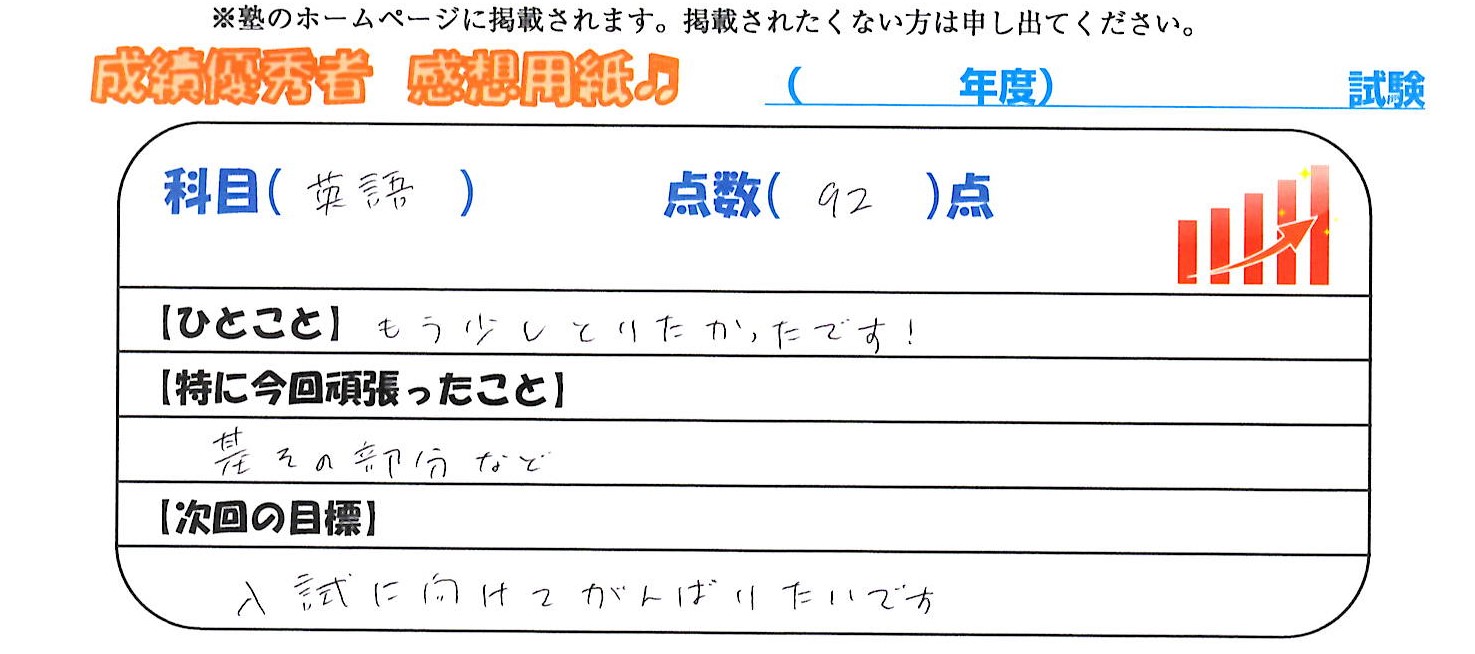 ※塾のホームページに掲載されます。掲載されたくない方は申し出てください。
成績優秀者 感想用紙♫ ( 年度) 試験
科目( 英語 ) 点数( 92 )点
【ひとこと】 もう少しとりたかったです!
【特に今回頑張ったこと】
基その部分など
【次回の目標】
入試に向けてがんばりたいです